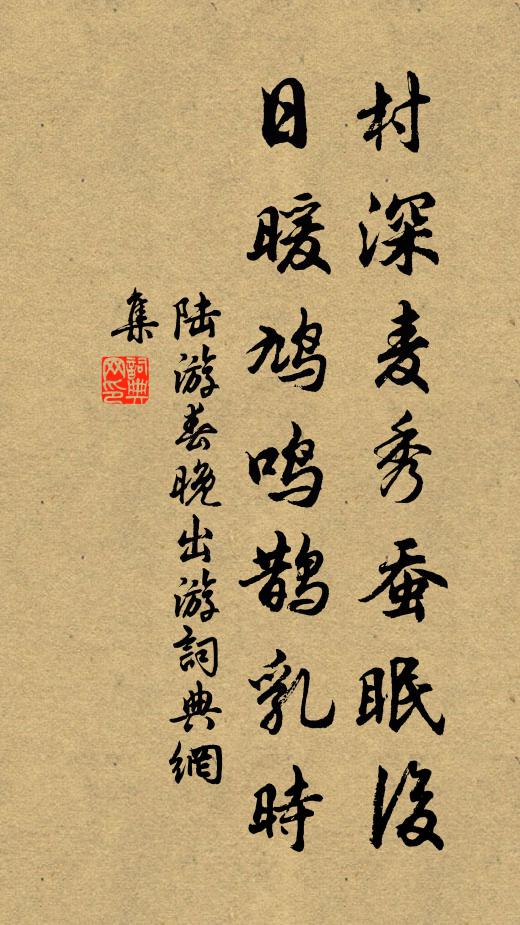 村深麦秀蚕眠後
日暖鳩鸣鹊乳時
陆游春晚出游詞典網
集
詞典
网印